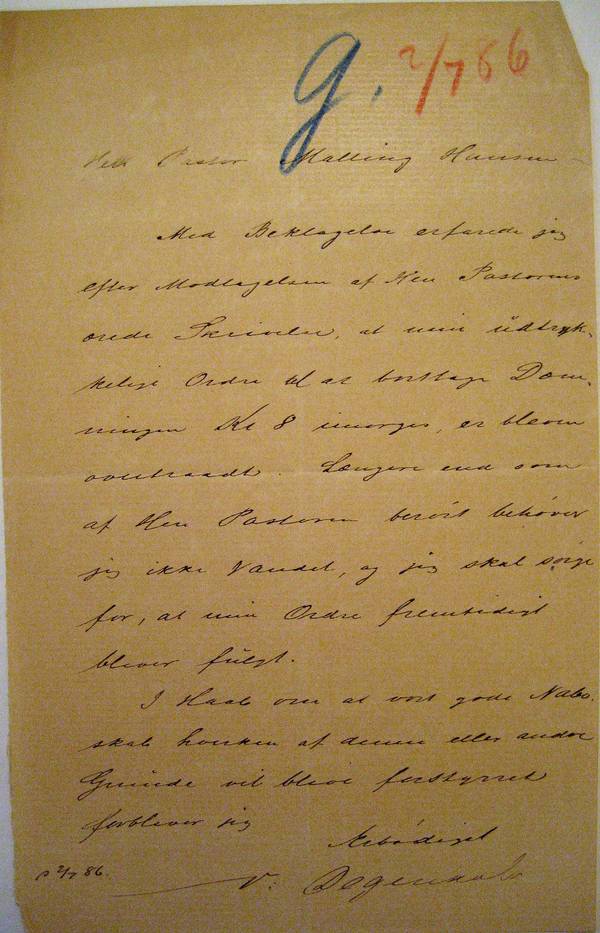 g. 2/7 86
Herr Pastor Malling Hansen
Med Beklagelse erfarede jeg
efter Modtagelsen af Herr Pastorens
ærede Skrivelse, at min üdtryk-
kelige Ordre til at borttage Dæm-
ningen Kl 8 imorges, er bleven
overtraadt. Længere end som
af Herr Pastoren berört behöver
jeg ikke Vandet, og jeg skal sörge
for, at min Ordre fremtidigt
bliver fülgt.
I Haab om at vort gode Nabo-
skab hverken af denne eller andre
Gründe vil blive forstyrret
forbliver jeg
Ærbödigst
2/7 86.
V. Degendal